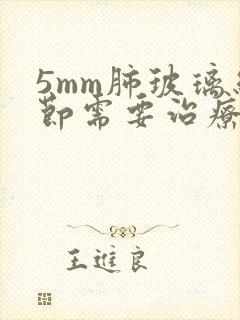 5mm肺玻璃结
节需要治疗
王進良